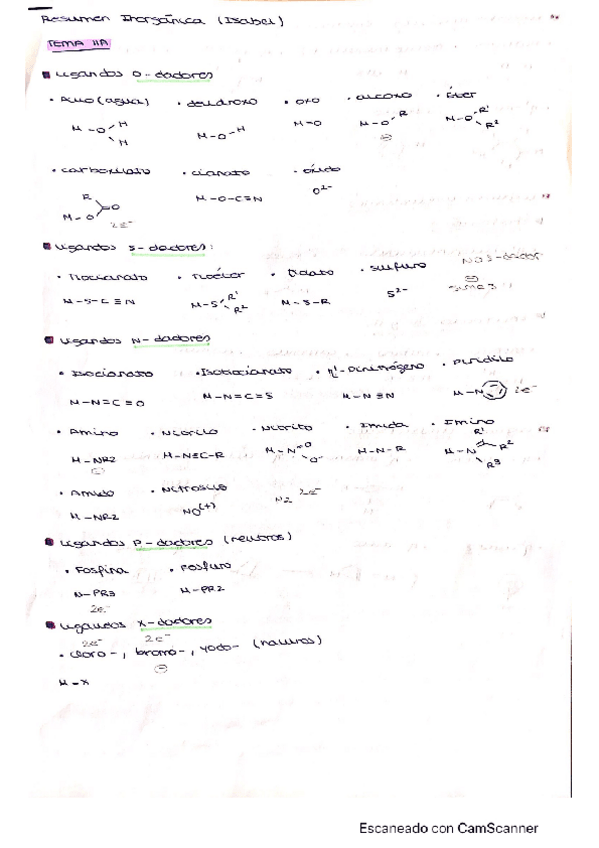 Resumen Inorgánica (Isabel)
TEMA 11A
Ligandos O-dadores
• Aquo (agua) • deuidroxo • oxo • alcoxo • Éter
M-O H H M-O-H M=O M-O R ⊖ M-O R¹ R²
• carboxilato • cianato • óxido
R O M-O 2e⁻ M-O-C≡N O²⁻
Ligandos S-dadores:
• Tiocianato • Tioéter • Tiolato • sulfuro
M-S-C≡N M-S R¹ R² M-S-R S²⁻
Ligandos N-dadores
• Isocianato • Isotiocianato • η¹-Dinitrógeno
M-N=C=O M-N=C=S M-N≡N M-N 2e⁻
• Amino • Nitrilo • Nitrito • Imida • Imino
M-NR2 ⊖ M-N≡C-R M-N O O⁻ M-N-R M-N R¹ R² R³
• Amido • Nitrosilo
M-NR2 NO(+) N2 2e⁻
Ligandos P-dadores (neutros)
• Fosfina • Fosfuro
M-PR3 M-PR2
2e⁻
Ligandos X-dadores
2e⁻ 2e⁻
• cloro-, bromo-, yodo-
⊖
M-X
Escaneado con CamScanner